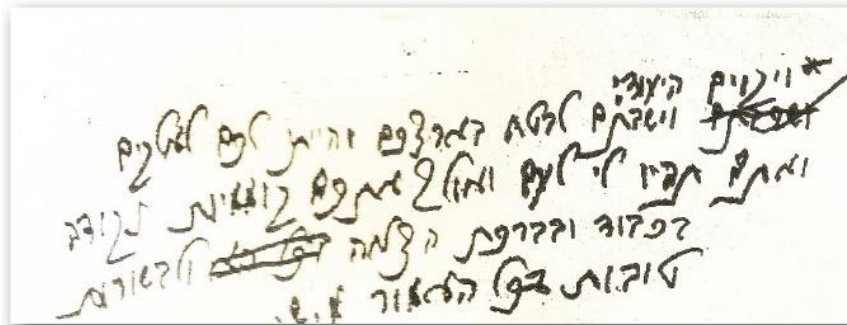 *ויקוים היעוד
וישבתם לבטח בארצכם והייתי לכם לאלקים
ואתם תהיו לי לעם ואולך אתכם קוממיות
בכבוד ובברכת הצלחה ולבשורות
טובות בכל האמור